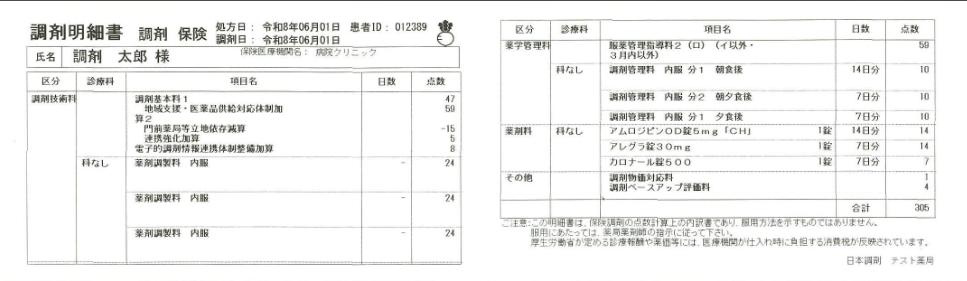 調剤明細書 調剤 保険
処方日： 令和8年06月01日 患者ID： 012389
調剤日： 令和8年06月01日
氏名 調剤 太郎 様
保険医療機関名： 病院クリニック
区分 診療科 項目名 日数 点数
調剤技術料 調剤基本料１ 47
地域支援・医薬品供給対応体制加 59
算２
門前薬局等立地依存減算 -15
連携強化加算 5
電子的調剤情報連携体制整備加算 8
科なし 薬剤調製料 内服 - 24
薬剤調製料 内服 - 24
薬剤調製料 内服 - 24
区分 診療科 項目名 日数 点数
薬学管理料 服薬管理指導料２（ロ）（イ以外・ 59
３月内以外）
科なし 調剤管理料 内服 分１ 朝食後 14日分 10
調剤管理料 内服 分２ 朝夕食後 7日分 10
調剤管理料 内服 分１ 夕食後 7日分 10
薬剤料 科なし アムロジピンＯＤ錠５ｍｇ「ＣＨ」 1錠 14日分 14
アレグラ錠３０ｍｇ 1錠 7日分 14
カロナール錠５００ 1錠 7日分 7
その他 調剤物価対応料 1
調剤ベースアップ評価料 4
合計 305
ご注意：この明細書は、保険調剤の点数計算上の内訳書であり、服用方法を示すものではありません。
服用にあたっては、薬局薬剤師の指示に従って下さい。
厚生労働省が定める診療報酬や薬価等には、医療機関が仕入れ時に負担する消費税が反映されています。
日本調剤 テスト薬局